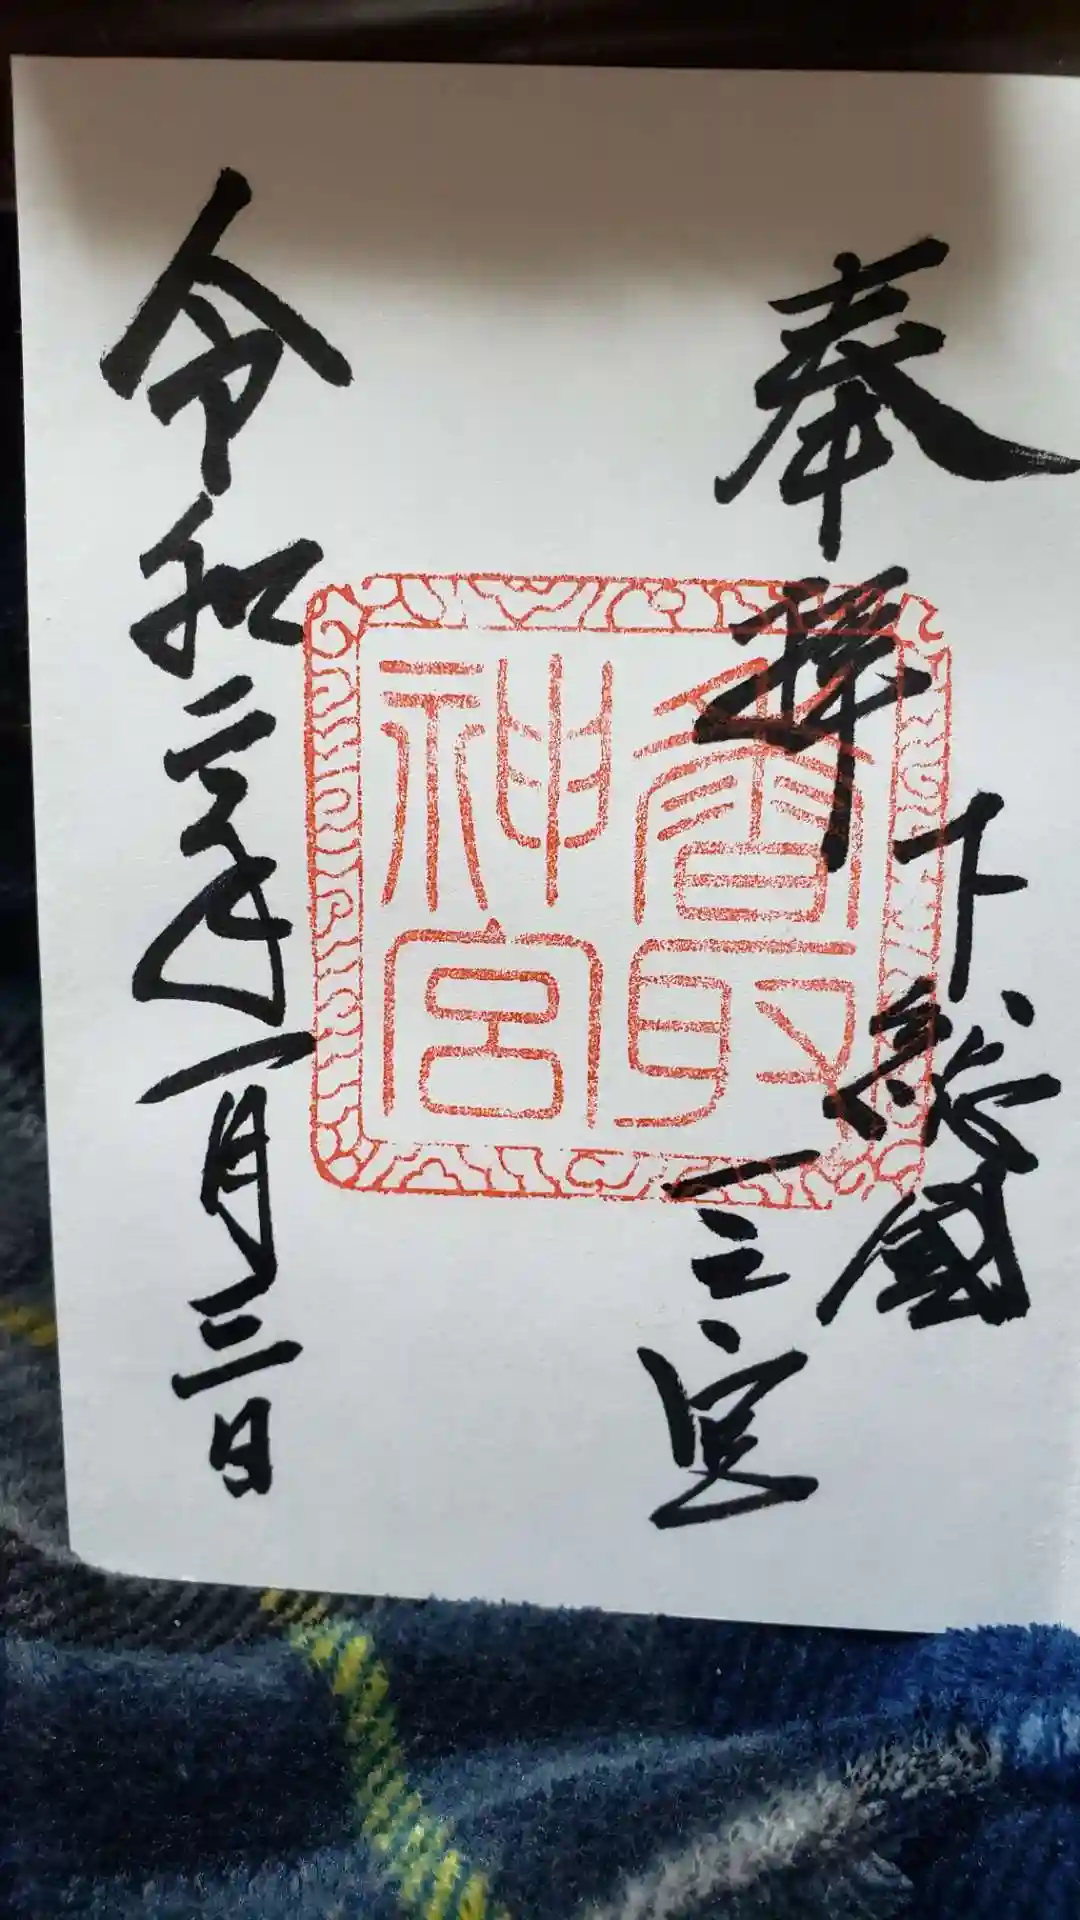 奉拝
下総國
一之宮
香取
神宮
令和二年一月三日